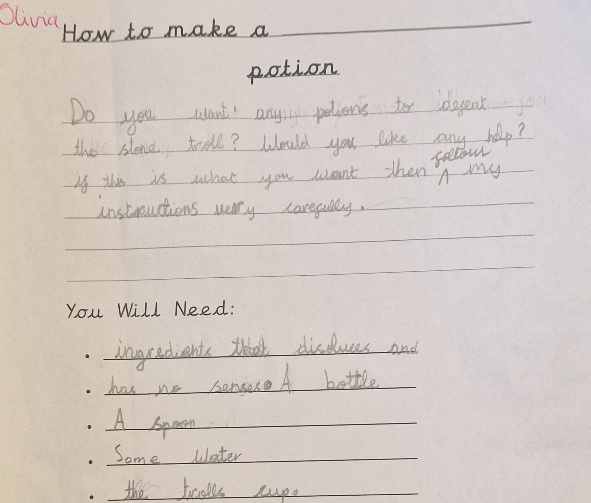 Olivia
How to make a
potion
Do you want any potions to defeat you
the stone troll? Would you like any help?
follow
if this is what you want then ^ my
instructions very carefully.
You Will Need:
• ingredients that disoluces and
• has no senses. A bottle
• A spoon
• Some Water
• the trolls cup.